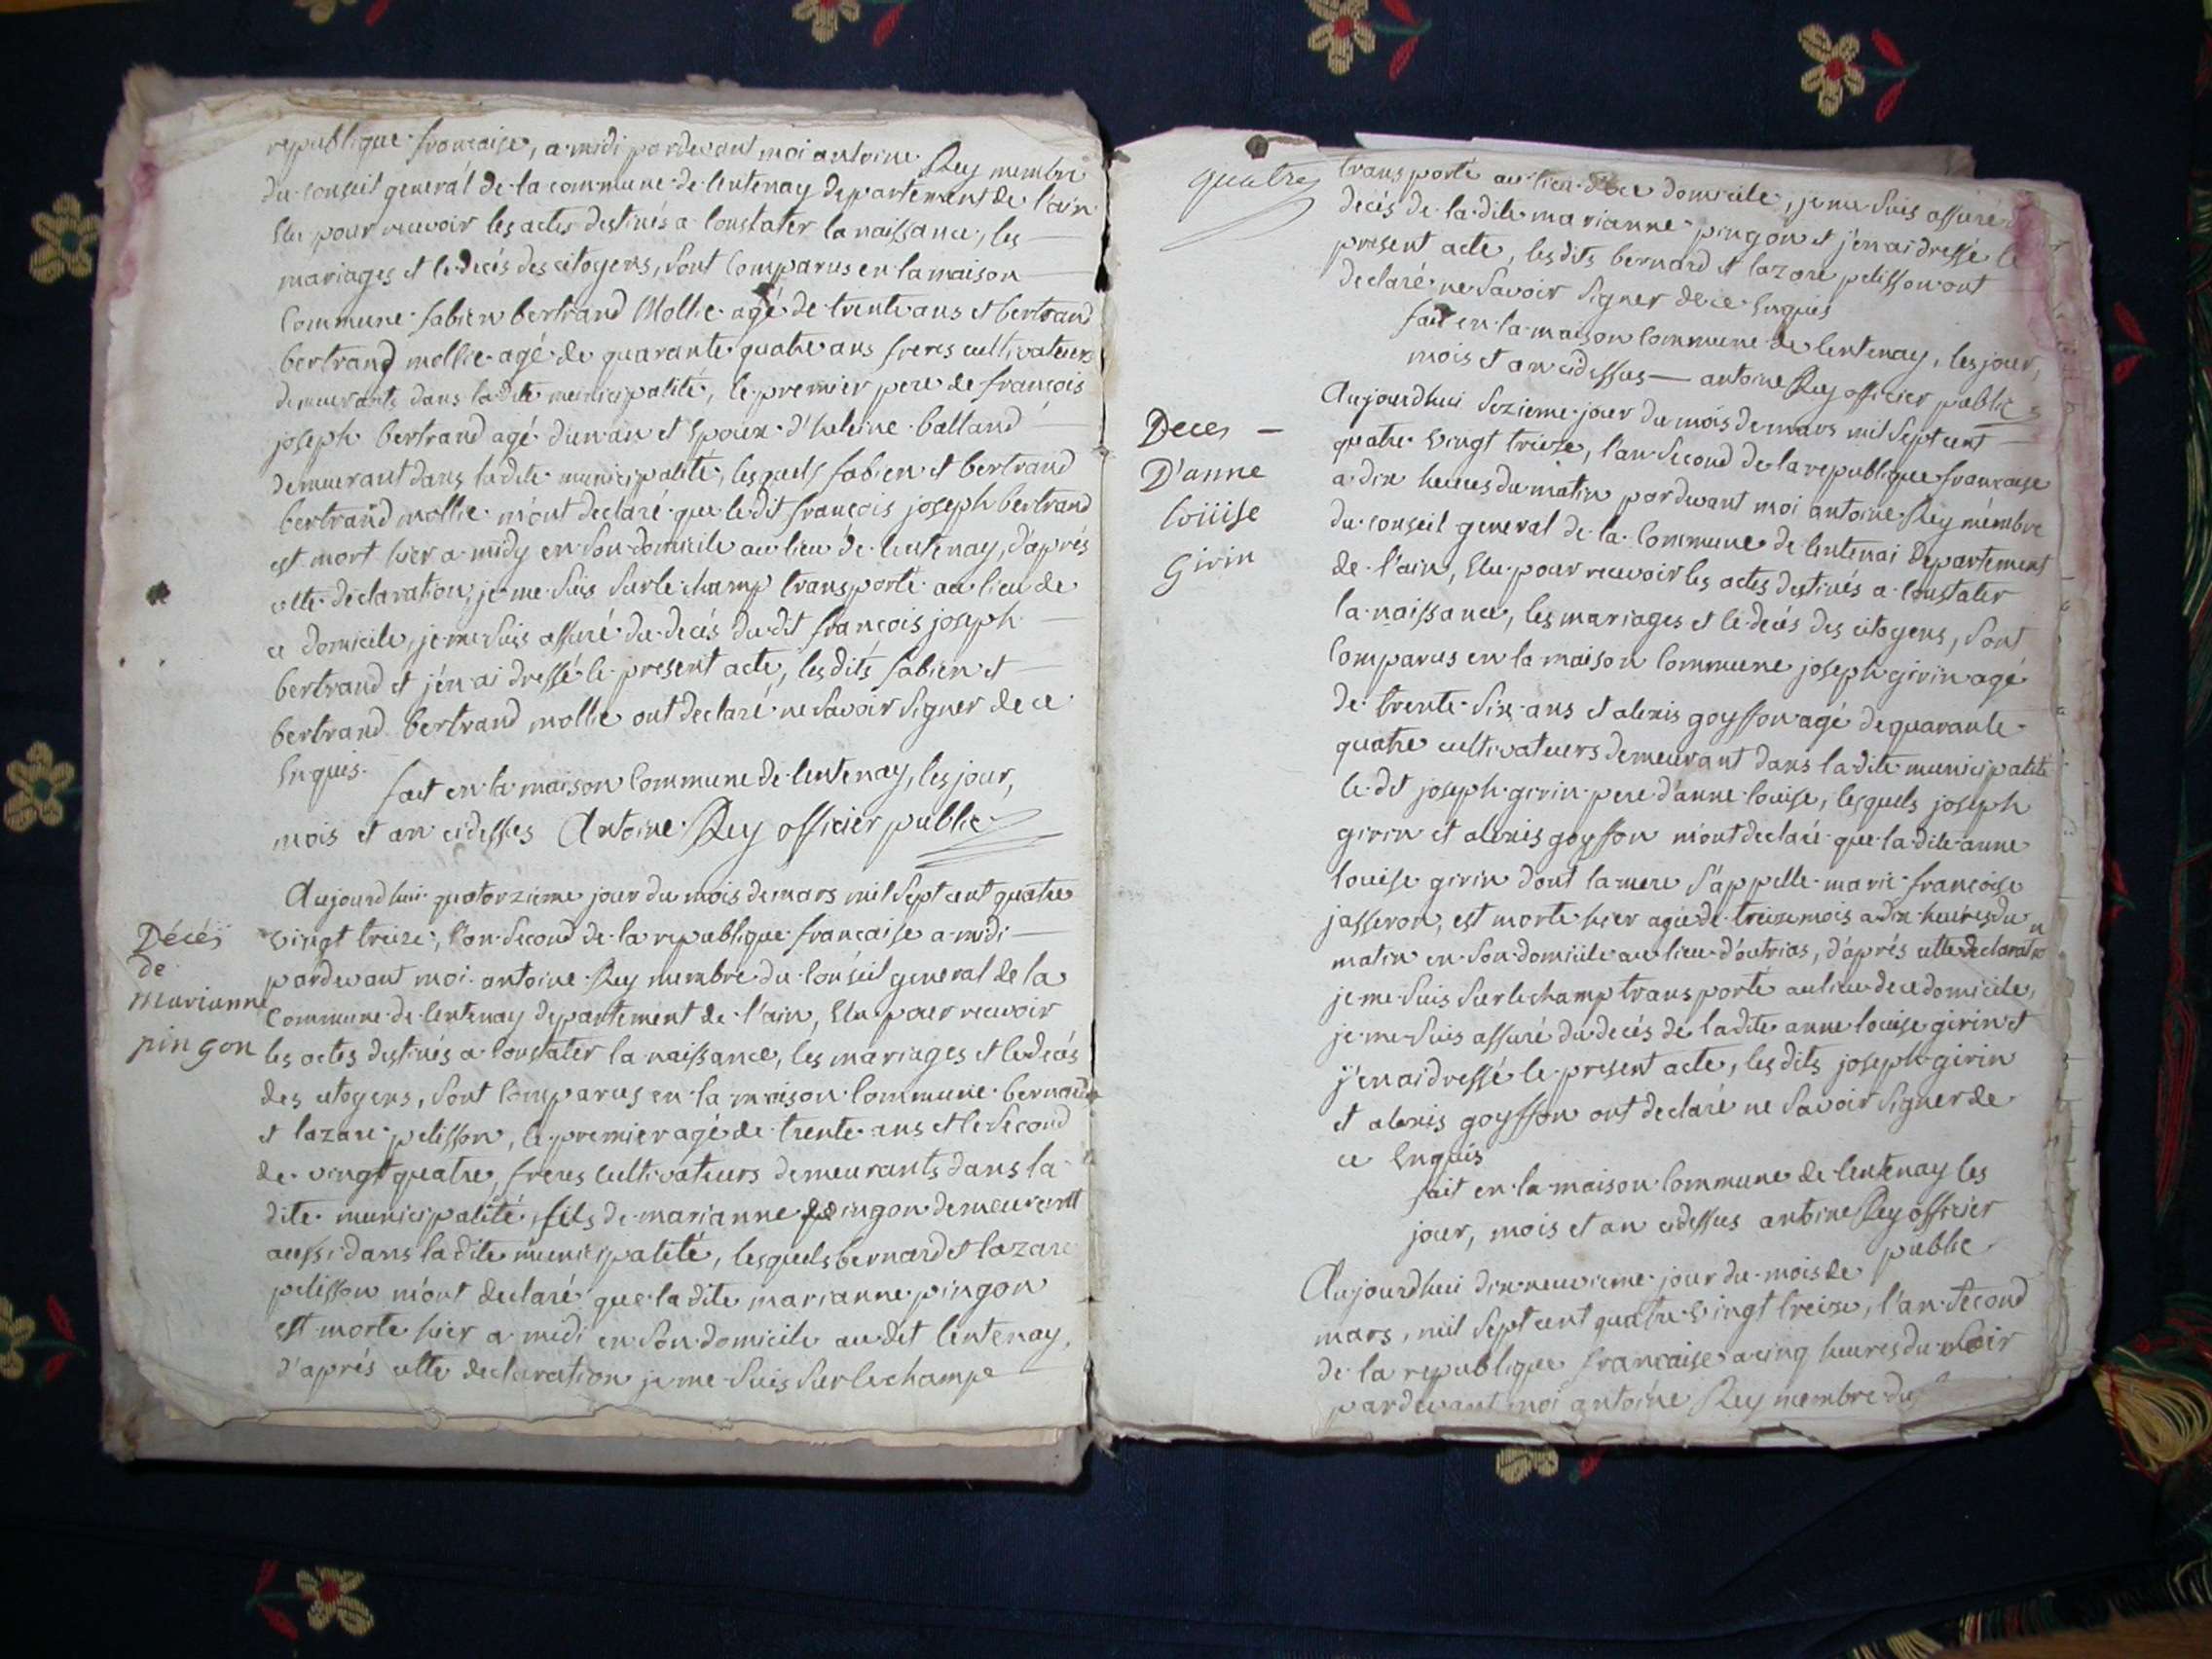 republique francaise, a midi pardevant moi antoine Rey membre
du conseil general de la commune de lentenay departement de l'ain
Elu pour recevoir les actes destinés a constater la naissance, les
mariages et le decés des citoyens, sont comparus en la maison
Commune fabien bertrand Mollie agé de trente ans et bertrand
bertrand mollie agé de quarante quatre ans freres cultivateurs
demeurants dans la dite municipalité, le premier pere de françois
joseph bertrand agé d'un an et Epoux d'heleine balland
demeurant dans la dite municipalité, lesquels fabien et bertrand
bertrand mollie m'ont declaré que le dit françois joseph bertrand
est mort hier a midy en son domicile au lieu de lentenay, d'aprés
cette declaration, je me suis sur le champ transporté au lieu de
ce domicile, je me suis assuré du decés du dit françois joseph
bertrand et j'en ai dressé le present acte, les dits fabien et
bertrand bertrand mollie ont declaré ne savoir signer de ce
Enquis.
fait en la maison Commune de lentenay, les jour,
mois et an cidessus Antoine Rey officier public
Décéš
de
marianne
pingon
Aujourdhui quatorzieme jour du mois de mars mil sept cent quatre
vingt treize, l'an second de la republique francaise a midi
pardevant moi antoine Rey membre du conseil general de la
Commune de lentenay departement de l'ain, Elu pour recevoir
les actes destinés a constater la naissance, les mariages et le decés
des citoyens, sont comparus en la maison commune bernard
et lazare pelisson, le premier agé de trente ans et le second
de vingt quatre, freres cultivateurs demeurants dans la
dite municipalité, fils de marianne pingon demeurant
aussi dans la dite municipalité, lesquels bernard et lazare
pelisson m'ont declaré que la dite marianne pingon
est morte hier a midi en son domicile au dit lentenay,
d'aprés cette declaration je me suis sur le champ
quatre
transporté au lieu de ce domicile, je me suis assuré
decés de la dite marianne pingon et j'en ai dressé le
present acte, les dits bernard et lazare pelisson ont
declaré ne savoir signer de ce Enquis
fait en la maison Commune de lentenay, les jour,
mois et an cidessus — antoine Rey officier public
Deces —
D'anne
loüise
Girin
Aujourdhui sezieme jour du mois de mars mil sept cent
quatre vingt treize, l'an second de la republique francaise
a dix heures du matin pardevant moi antoine Rey membre
du conseil general de la Commune de lentenai departement
de l'ain, Elu pour recevoir les actes destinés a constater
la naissance, les mariages et le decés des citoyens, sont
Comparus en la maison Commune joseph girin agé
de trente six ans et alexis goyffon agé de quarante
quatre cultivateurs demeurant dans la dite municipalité
le dit joseph girin pere d'anne louise, lesquels joseph
girin et alexis goyffon m'ont declaré que la dite anne
louise girin dont la mere s'appelle marie françoise
jasseron, est morte hier agée de treize mois a dix heures du
matin en son domicile au lieu d'outrias, d'aprés cette declaration
je me suis sur le champ transporté au lieu de ce domicile,
je me suis assuré du decés de la dite anne louise girin et
j'en ai dressé le present acte, les dits joseph girin
et alexis goyffon ont declaré ne savoir signer de
ce Enquis
fait en la maison Commune de lentenay les
jour, mois et an cidessus antoine Rey officier
public
Aujourdhui dix neuvieme jour du mois de
mars, mil sept cent quatre vingt treize, l'an second
de la republique francaise a cinq heures du soir
pardevant moi antoine Rey membre du